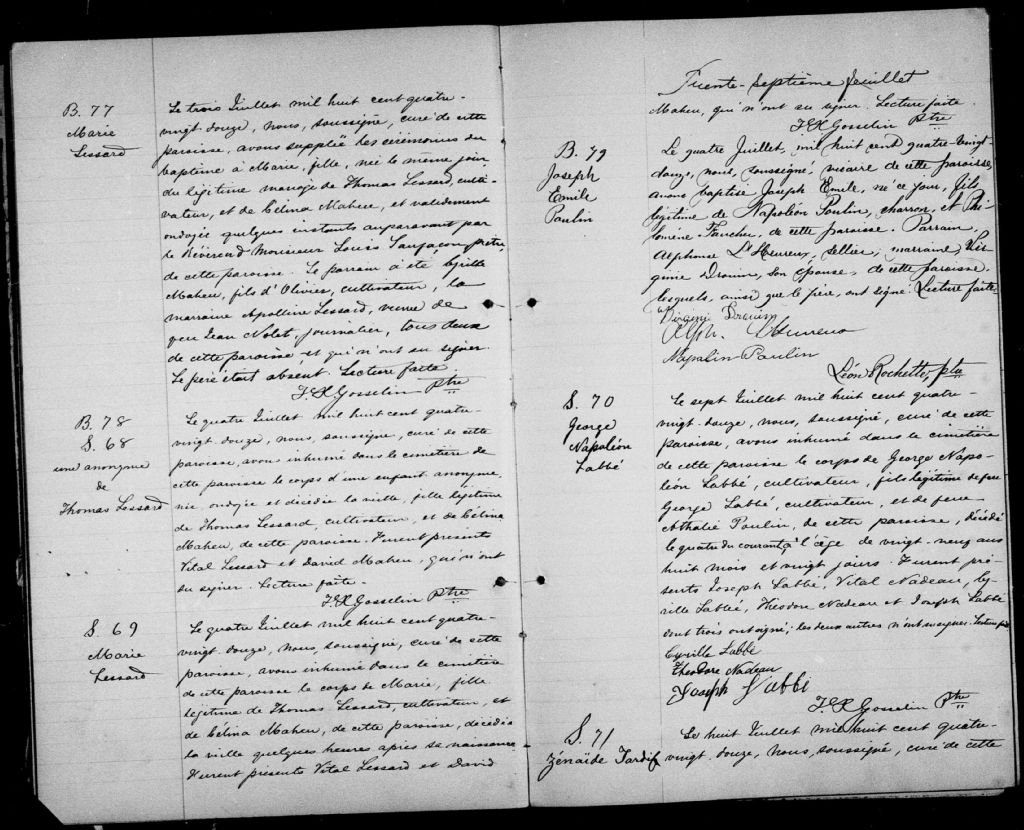 B. 77
Marie
Lessard
Le trois Juillet mil huit cent quatre-
vingt-douze, nous, soussigné, curé de cette
paroisse, avons suppléé les cérémonies du
baptême à Marie, fille, née le même jour
du légitime mariage de Thomas Lessard, culti-
vateur, et de Célina Maheu, et validement
ondoyée quelques instants auparavant par
le Révérend Monsieur Louis Sanfaçon, prêtre,
de cette paroisse. Le parrain a été
Maheu, fils d'Olivier, cultivateur, la
marraine Apolline Lessard, veuve de
feu Jean Nolet, journalier, tous deux
de cette paroisse et qui n'ont su signer.
Le père étant absent. Lecture faite
J. X Gosselin Ptre
B. 78
S. 68
une anonyme
de
Thomas Lessard
Le quatre Juillet mil huit cent quatre-
vingt-douze, nous, soussigné, curé de cette
paroisse, avons inhumé dans le cimetière de
cette paroisse le corps d'une enfant anonyme,
née, ondoyée et décédée la veille, fille légitime
de Thomas Lessard, cultivateur, et de Célina
Maheu, de cette paroisse. Furent présents
Vital Lessard et David Maheu, qui n'ont
su signer. Lecture faite.
J. X Gosselin Ptre
S. 69
Marie
Lessard
Le quatre Juillet mil huit cent quatre-
vingt-douze, nous, soussigné, curé de cette
paroisse, avons inhumé dans le cimetière
de cette paroisse le corps de Marie, fille
légitime de Thomas Lessard, cultivateur, et
de Célina Maheu, de cette paroisse, décédée
la veille quelques heures après sa naissance.
Furent présents Vital Lessard et David
Trente-septième feuillet
Maheu, qui n'ont su signer. Lecture faite.
J. X Gosselin Ptre
B. 79
Joseph
Emile
Poulin
Le quatre Juillet, mil huit cent quatre-vingt-
douze, nous, soussigné, vicaire de cette paroisse,
avons baptisé Joseph Emile, né ce jour, fils
légitime de Napoléon Poulin, charron, et Phi-
lomène Faucher, de cette paroisse. Parrain,
Alphonse L'Heureux, sellier; marraine, Vir-
ginie Drouin, son épouse, de cette paroisse.
lesquels, ainsi que le père, ont signé. Lecture faite.
Virginie Drouin
Alph. L'Heureux
Napoléon Poulin
Léon Rochette, ptre
S. 70
George
Napoléon
Labbé
Le sept Juillet mil huit cent quatre-
vingt-douze, nous, soussigné, curé de cette
paroisse, avons inhumé dans le cimetière
de cette paroisse le corps de George Napo-
léon Labbé, cultivateur, fils légitime de feu
George Labbé, cultivateur, et de feue
Athalie Poulin, de cette paroisse, décédé
le quatre du courant à l'âge de vingt-neuf ans
huit mois et vingt jours. Furent pré-
sents Joseph Labbé, Vital Nadeau, Cy-
rille Labbé, Théodore Nadeau et Joseph Labbé
dont trois ont signé; les deux autres n'ont su signer. Lecture faite
Cyrille Labbé
Théodore Nadeau
Joseph Labbé
J. X Gosselin Ptre
S. 71
Zénaïde Tardif
Le huit Juillet mil huit cent quatre-
vingt-douze, nous, soussigné, curé de cette